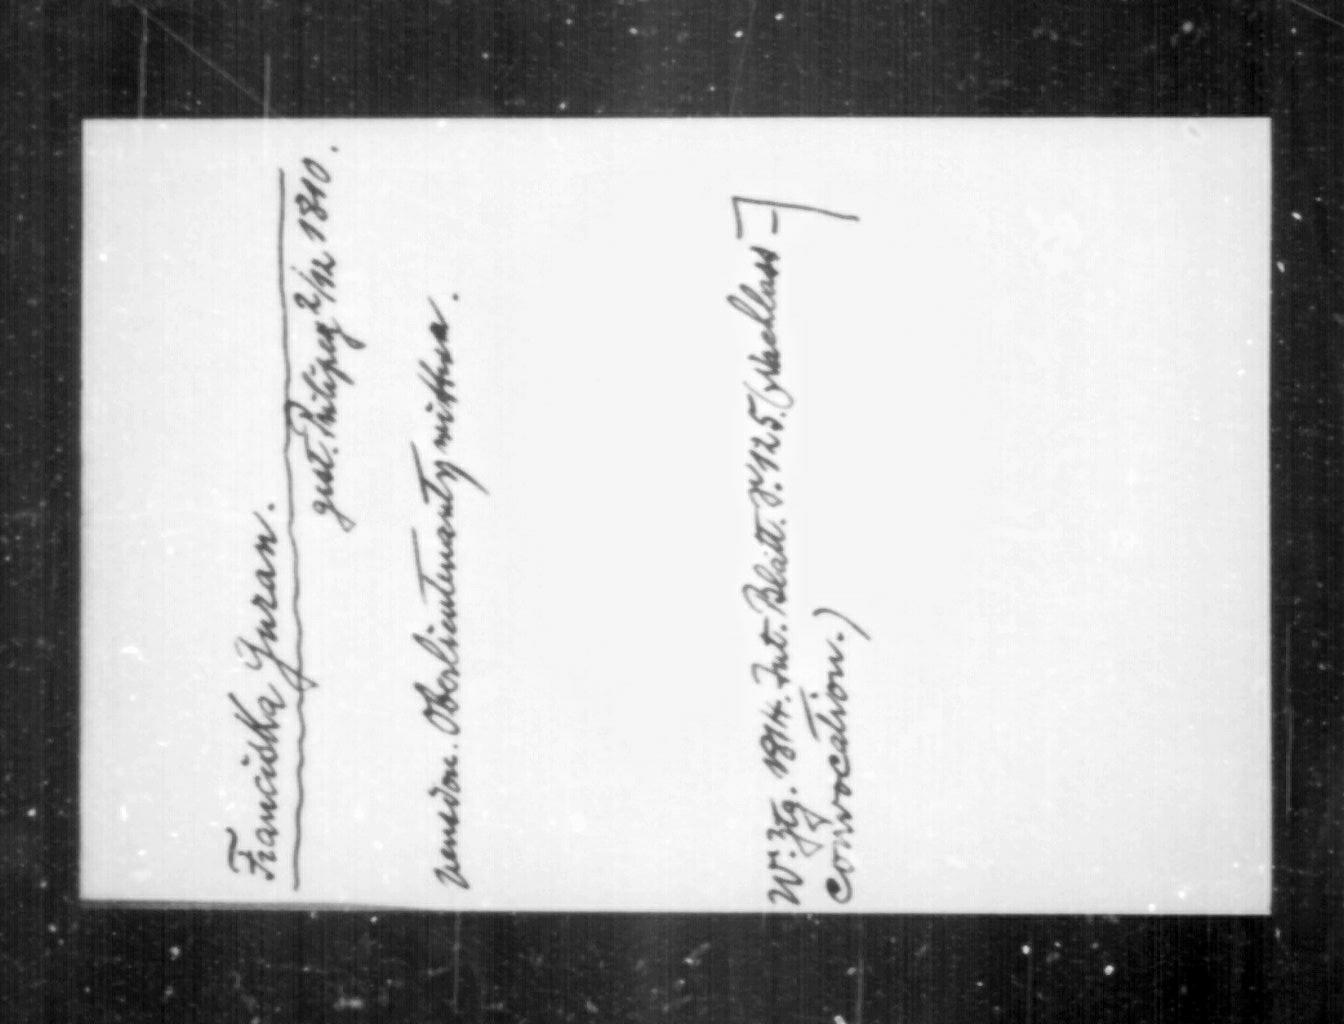 Franciska Juran.
gest. 2/12 1810.
pension. Oberlieutenantswittwe.
W. Ztg. 1814. Int. Blatt. N. 125. (Nachlass-
convocation.)